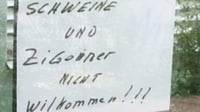 SCHWEINE
UND
ZiGOiNER
NICHT
Willkommen!!!